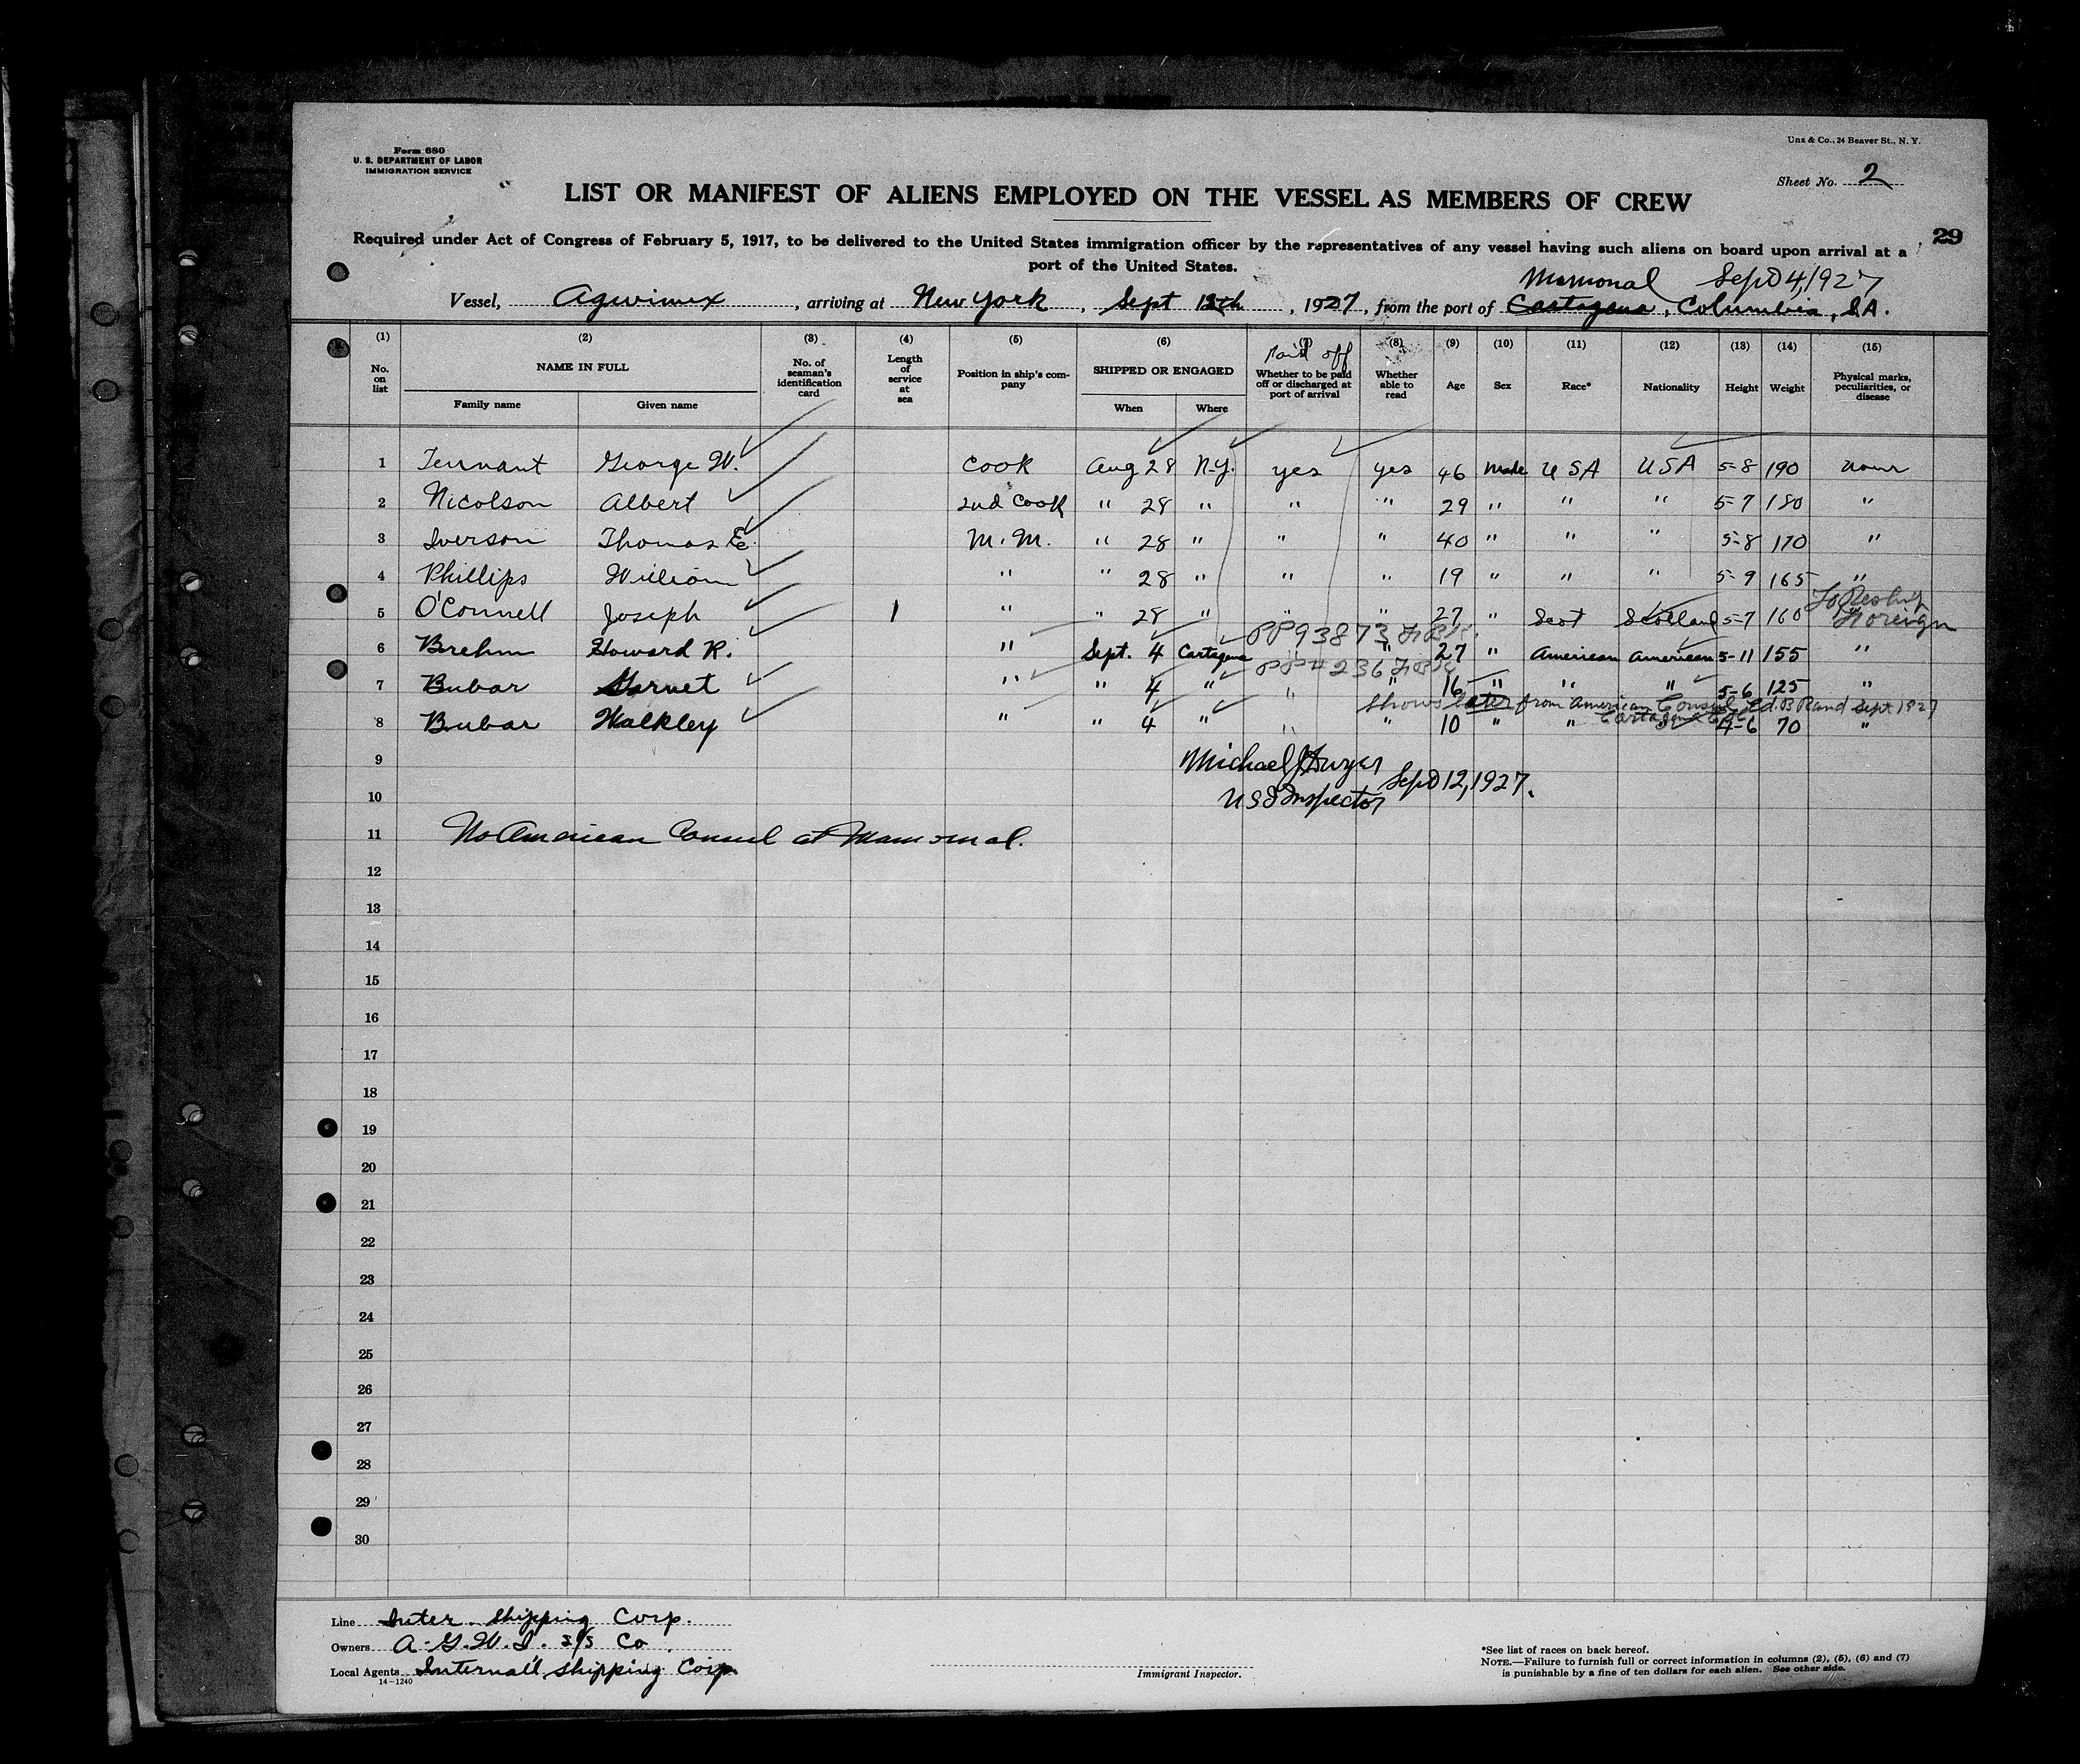 Form 680
U. S. DEPARTMENT OF LABOR
IMMIGRATION SERVICE
Unz & Co., 24 Beaver St., N. Y.
Sheet No. 2
LIST OR MANIFEST OF ALIENS EMPLOYED ON THE VESSEL AS MEMBERS OF CREW
29
Required under Act of Congress of February 5, 1917, to be delivered to the United States immigration officer by the representatives of any vessel having such aliens on board upon arrival at a
port of the United States.
Mamonal Sept 4, 1927
Vessel, Agwimex, arriving at New York, Sept 12th, 1927, from the port of Cartagena, Columbia, S.A.
(1) (2) (3) (4) (5) (6) (8) (9) (10) (11) (12) (13) (14) (15)
No. on list
NAME IN FULL
Family name Given name
No. of seaman's identification card
Length of service at sea
Position in ship's company
SHIPPED OR ENGAGED
When Where
Paid off
Whether to be paid off or discharged at port of arrival
Whether able to read
Age Sex Race* Nationality Height Weight
Physical marks, peculiarities, or disease
1 Tennant George W. Cook Aug 28 N.Y. yes yes 46 Male USA USA 5-8 190 none
2 Nicolson Albert 2nd Cook " 28 " " " 29 " " " 5-7 180 "
3 Iverson Thomas E. M.M. " 28 " " " 40 " " " 5-8 170 "
4 Phillips William " " 28 " " " 19 " " " 5-9 165 "
To Reship Foreign
5 O'Connell Joseph 1 " " 28 " " " 27 " Scot Scotland 5-7 160 "
PP93873
6 Brehm Howard R. " Sept. 4 Cartagena " 27 " American American 5-11 155 "
PP#236
7 Bubar Garnet " " 4 " " " 16 " " " 5-6 125 "
Shows letter from American Consul Ed. B Rand Sept 1927
Cartagena
8 Bubar Walkley " " 4 " " " 10 " " " 4-6 70 "
9
Michael J Dwyer
Sept 12, 1927.
10
U S I Inspector
11 No American Consul at Mamonal.
12
13
14
15
16
17
18
19
20
21
22
23
24
25
26
27
28
29
30
Line Inter. Shipping Corp.
Owners A.G.W.I. S/S Co.
Local Agents Internat'l Shipping Corp
14—1240
Immigrant Inspector.
*See list of races on back hereof.
NOTE.—Failure to furnish full or correct information in columns (2), (5), (6) and (7)
is punishable by a fine of ten dollars for each alien. See other side.